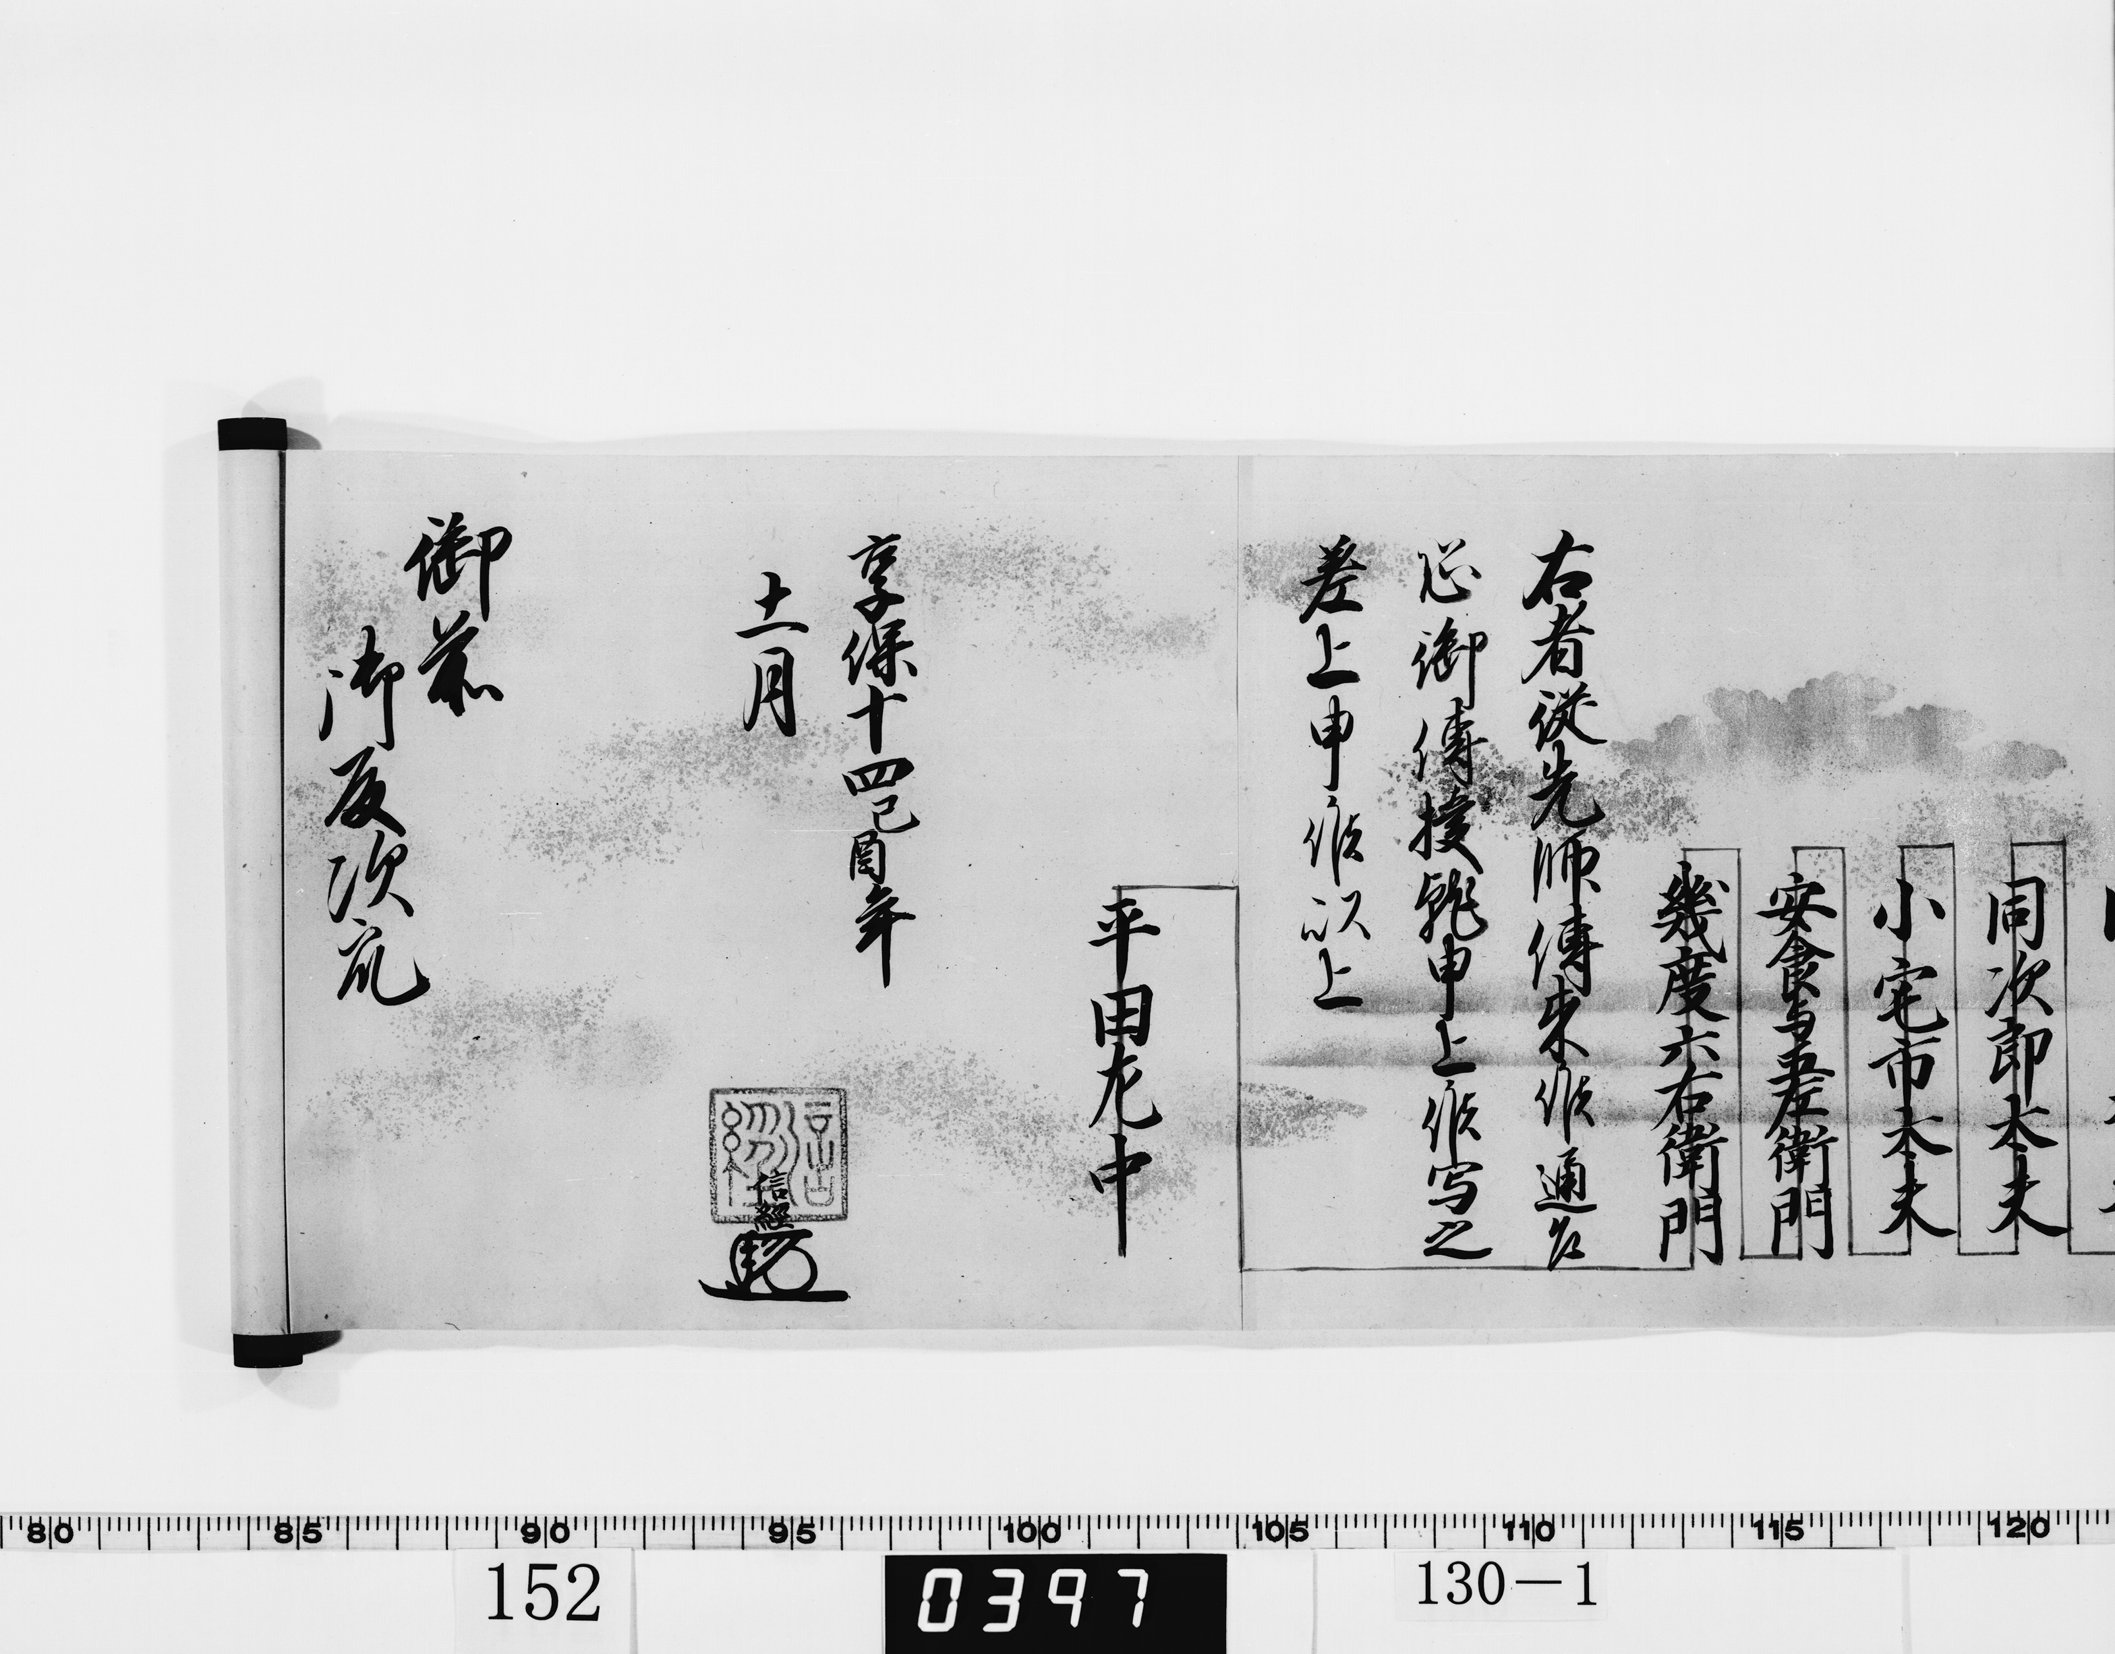 同次郎太夫
小宅市太夫
安食与五左衛門
幾度六右衛門
右者従先師傳来候通名
御傳授乾申上候写之
差上申候以上
平田尤中
享保十四己酉年
十一月
信経
御前
御取次衆
80 85 90 95 100 105 110 115 120
152
0397
130-1